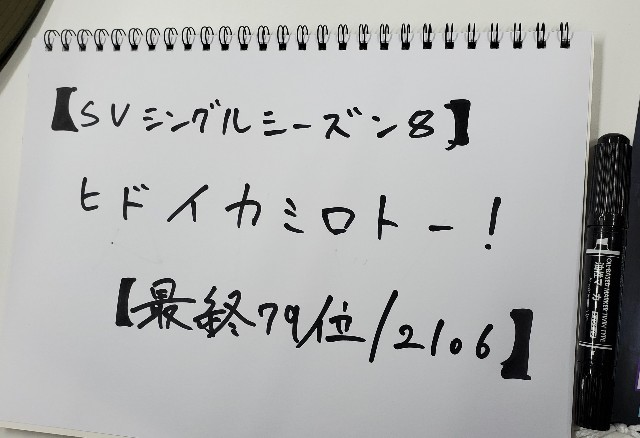 【SVシングルシーズン8】
ヒドイカミロトー!
【最終79位/2106】
油性マーカー